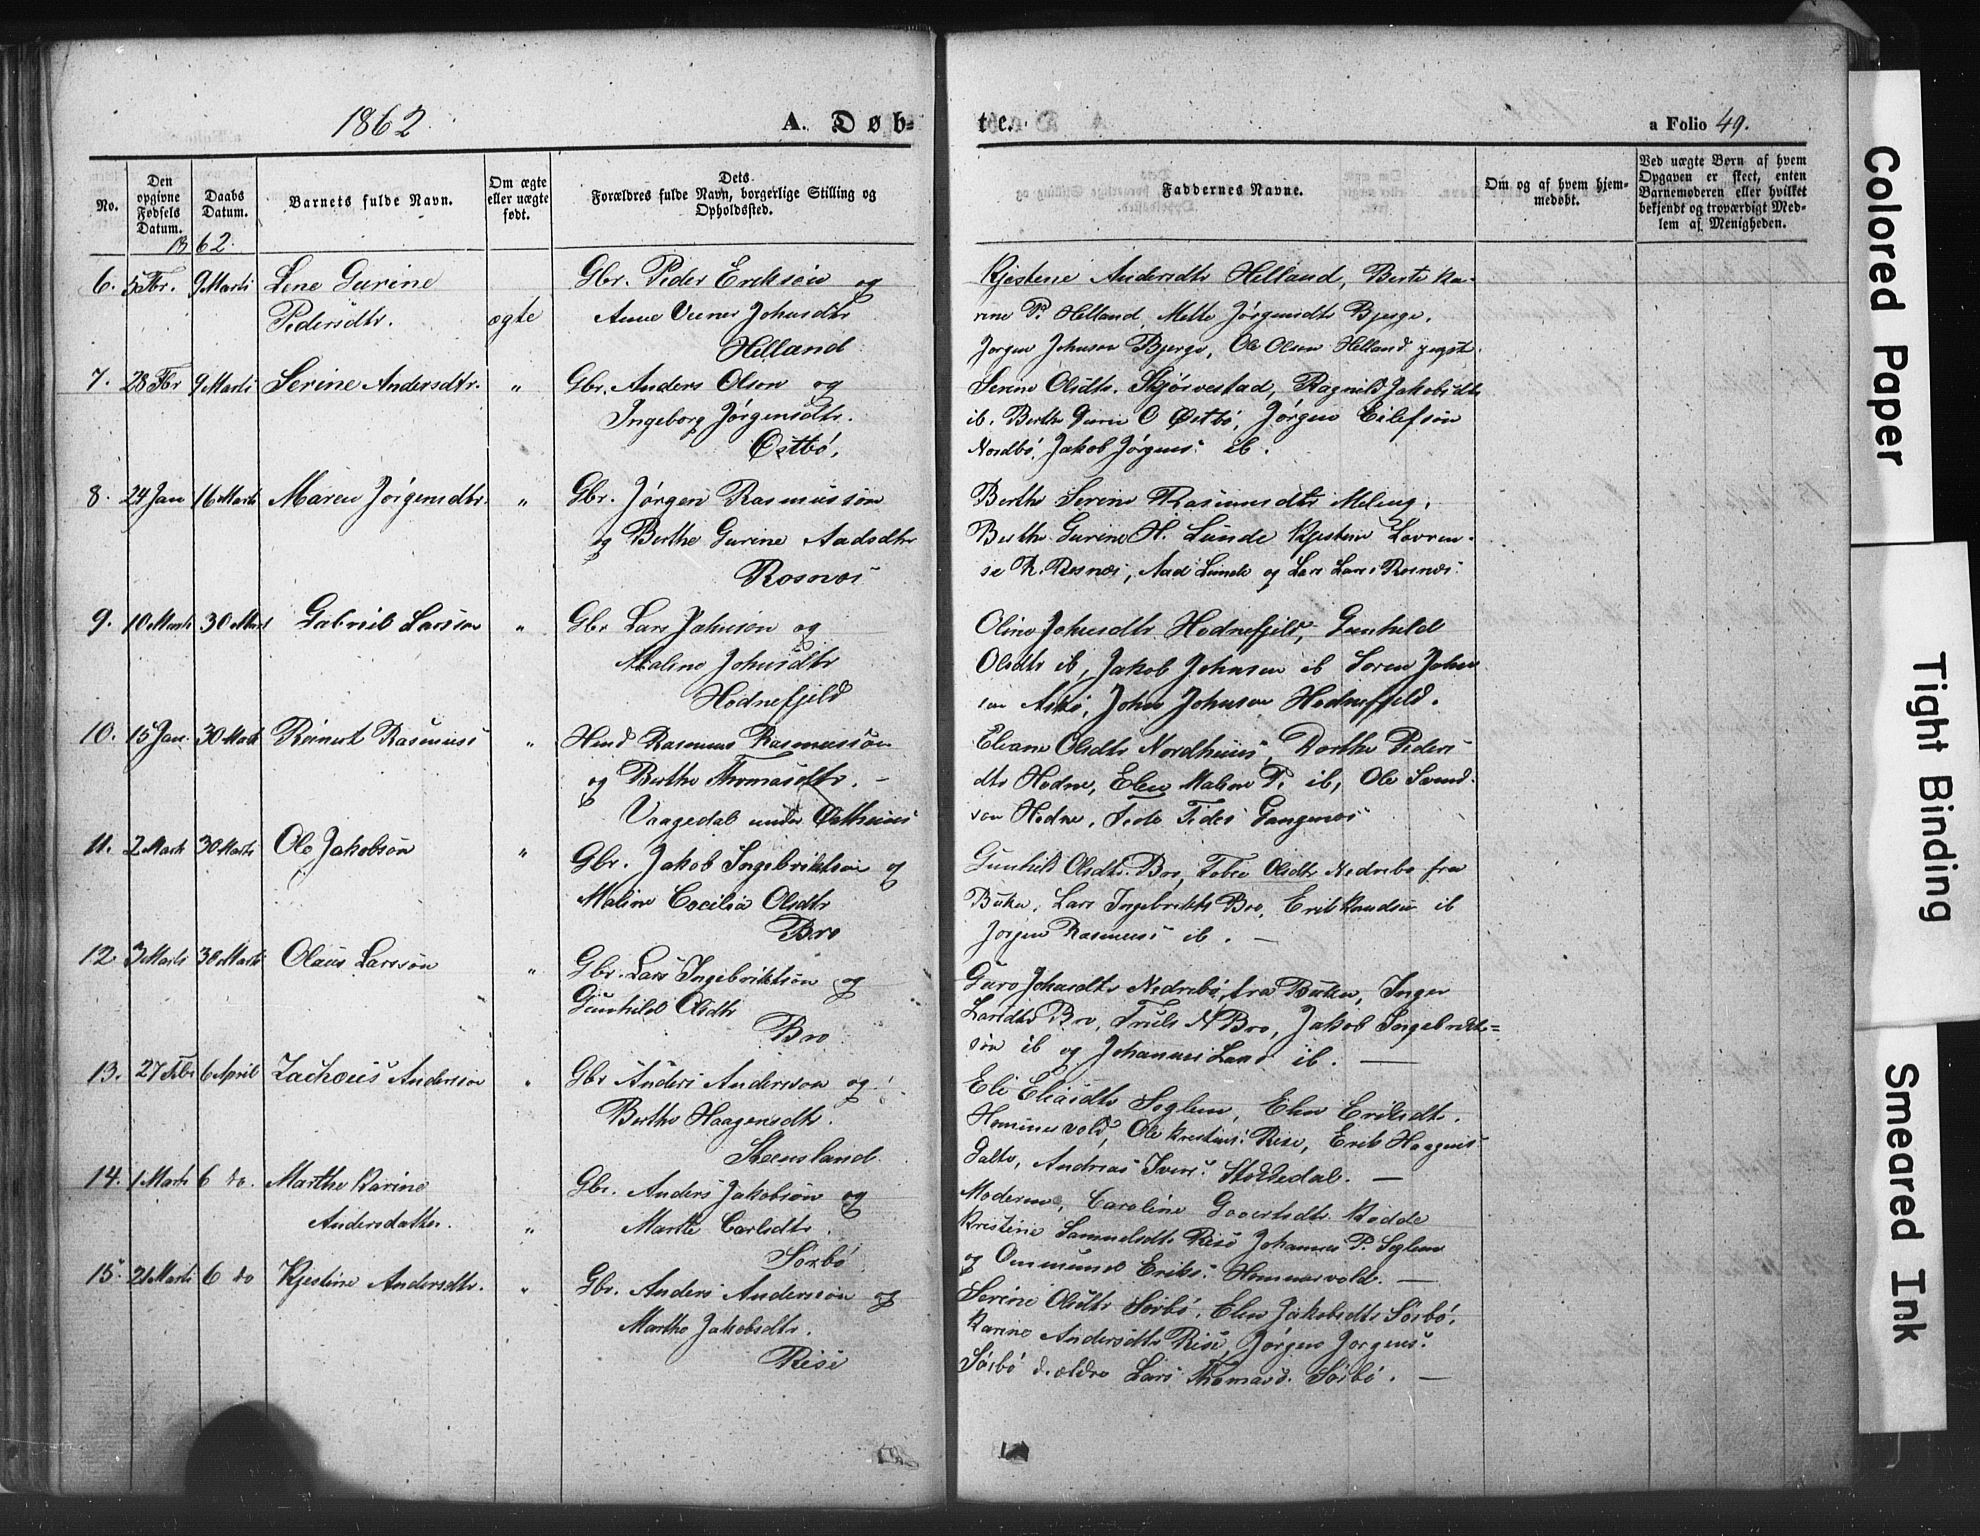 1862.
A. Døb-
te.
a Folio 49.
No.
Den opgivne Fødsels Datum.
Daabs Datum.
Barnets fulde Navn.
Om ægte eller uægte født.
Dets Forældres fulde Navn, borgerlige Stilling og Opholdssted.
Faddernes Navne.
Om og af hvem hjemmedøbt.
Ved uægte Børn af hvem Opgaven er skeet, enten Barnemoderen eller hvilket bekjendt og troværdigt Medlem af Menigheden.
1862.
6. 5 Fbr. 9 Marts Lene Gurine Gbr. Peder Erikson og
Pedersdtr. ægte Anne Johnsdtr
Helland
Kjestene Andersdtr Helland, Berte Ka-
rine P. Helland, Mette Jørgensdtr Bjerge,
Jørgen Johnson Bjerge, Ole Olson Helland
7. 28 Fbr 9 Marts Serine Andersdtr. " Gbr. Anders Olson og
Ingeborg Jørgensdtr.
Østbö,
Serine Olsdtr. Skjörvestad, Ragnild Jakobsdtr
ib. Berthe Gurine O Östbö, Jörgen Eilefsön
Nordbö, Jakob Jörgens: ib.
8. 24 Jan 16 Marts Maren Jörgensdtr. " Gbr. Jörgen Rasmussön
og Berthe Gurine Aadsdtr
Rosnæs
Berthe Serine Rasmusdtr Meling,
Berthe Gurine H. Lunde Kjestene Lovren-
se R. Rosnæs, Aad Lunde og Lars Lars: Rosnæs
9. 10 Marts 30 Marts Gabriel Larsson " Gbr Lars Johnson og
Maline Johnsdtr
Hodnefjeld
Oline Johnsdtr Hodnefjeld, Gunhild
Olsdtr ib, Jakob Johnsen ib Soren John
son Askö, John Johnson Hodnefjeld.
10. 15 Jan. 30 Marts Reinert Rasmuss " Hmd Rasmus Rasmussön
og Berthe Thomasdtr. -
Vaagedal under Östhuus
Eliane Olsdtr Nordhuus, Dorthe Peders
dtr Hodne, Elen Maline P. ib, Ole Svend-
son Hodne, Tede Tedes Gangenæs
11. 2 Marts 30 Marts Ole Jakobson " Gbr. Jakob Ingebriktson og
Maline Cecilia Olsdtr
Bro
Gunhild Olsdtr. Bro, Tobea Olsdtr Nedrebo fra
Buken, Lars Ingebrikts Bro, Erik Knudsen ib
Jorgen Rasmuss ib. -
12. 3 Marts 30 Marts Olaus Larssön " Gbr. Lars Ingebriktsön og
Gunhild Olsdtr
Bro
Guro Johnsdtr Nedrebö, fra Buken, Inger
Larsdtr Bro, Truls N Bro, Jakob Ingebrikts=
sön ib og Johannes Lars: ib. -
13. 27 Febr 6 April Zachæus Andersson " Gbr Anders Andersson og
Berthe Haagensdtr.
Steensland
Eli Eliasdtr Seglem, Elen Eriksdtr.
Hommersvold, Ole Kristens: Reise, Erik Haagens
Galte, Andreas Ivers: Stoledal. -
14. 1 Marts 6 do. Marthe Karine Gbr. Anders Jakobsön og
Andersdatter. " Marthe Carlsdtr.
Sörbö
Moderen, Caroline Govertsdtr. Rodde
Kristine Samuelsdtr Reise Johannes P. Seglem
og Ommund Eriks: Hommersvold. -
15. 21 Marts 6 do Kjestine Andersdtr. " Gbr. Anders Anderssön og
Marthe Jakobsdtr.
Reise
Serine Olsdtr Sörbö, Elen Jakobsdtr Sörbö,
Karine Andersdtr Reise, Jörgen Jorgens:
Sörbö d. ældre Lars Thomas: Sörbö. -
Colored Paper
Tight Binding
Smeared Ink